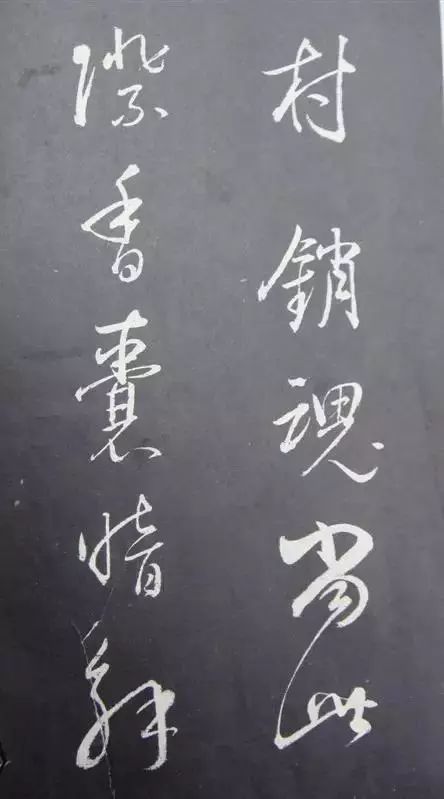 村銷魂當此
際香囊暗解